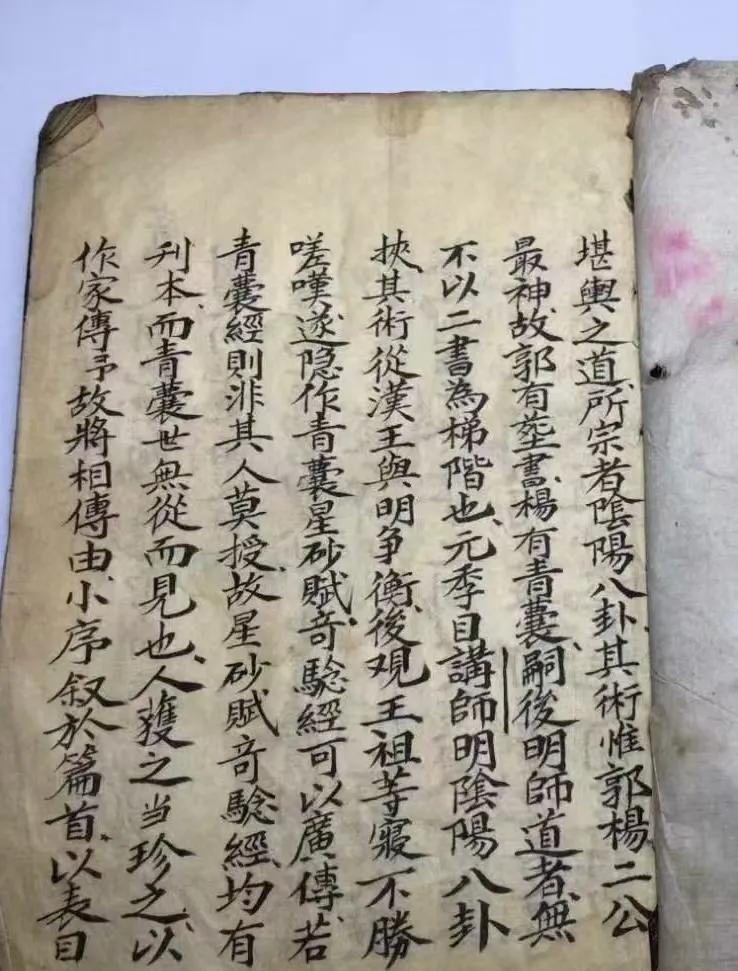 堪輿之道所宗者陰陽八卦其術惟郭楊二公
最神故郭有塟書楊有青囊嗣後明師道者無
不以二書為梯階也元季目講師明陰陽八卦
挾其術從漢王與明争衡後观王祖等寢不勝
嗟嘆遂隐作青囊星砂賦竒驗經可以廣傳若
青囊經則非其人莫授故星砂賦竒驗經均有
刋本而青囊世無從而見也人獲之当珍之以
作家傳予故將相傳由小序叙於篇首以表目